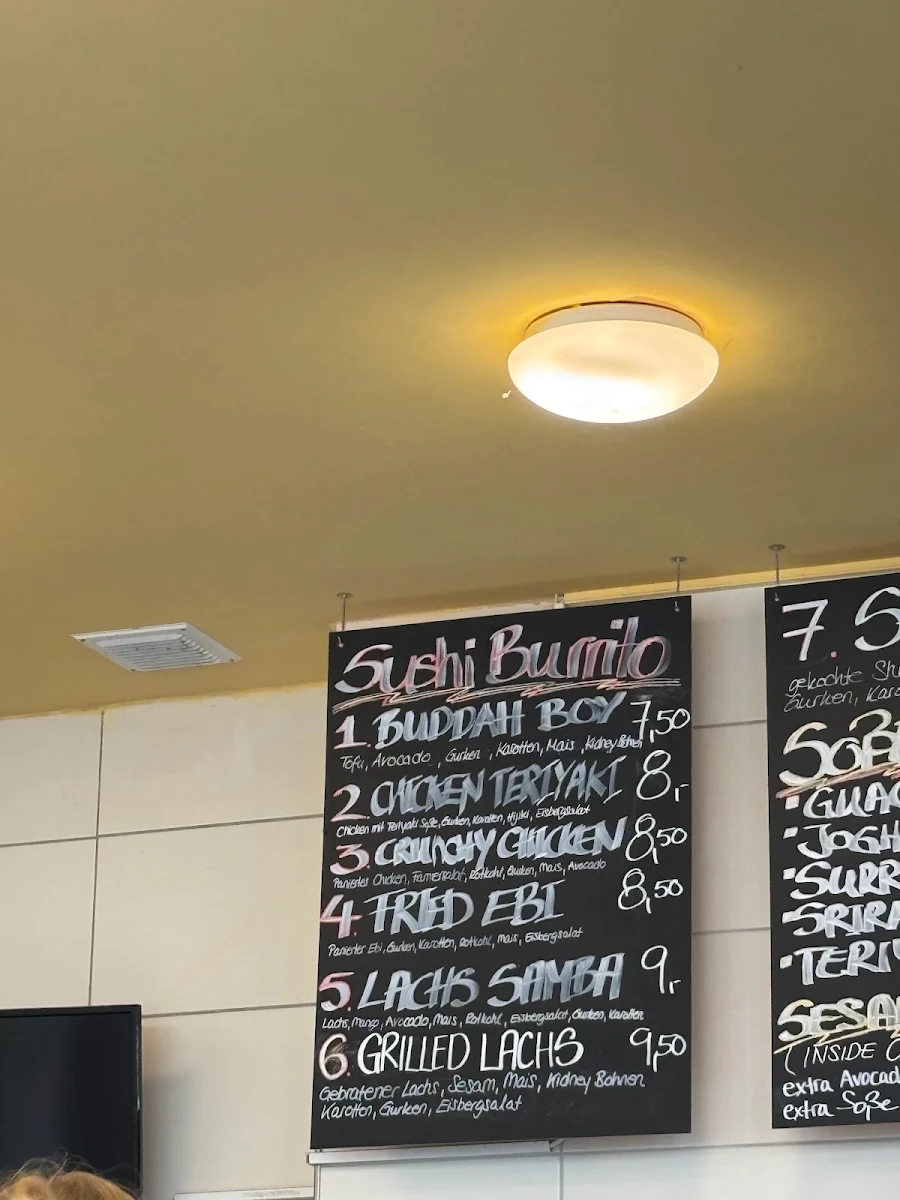 Sushi Burrito
1. BUDDAH BOY 7,50
Tofu, Avocado, Gurken, Karotten, Mais, Kidney Bohnen
2. CHICKEN TERIYAKI 8,-
Chicken mit Teriyaki Soße, Gurken, Karotten, Hijiki, Eisbergsalat
3. CRUNCHY CHICKEN 8,50
Paniertes Chicken, Farmersalat, Rotkohl, Gurken, Mais, Avocado
4. FRIED EBI 8,50
Panierter Ebi, Gurken, Karotten, Rotkohl, Mais, Eisbergsalat
5. LACHS SAMBA 9,-
Lachs, Mango, Avocado, Mais, Rotkohl, Eisbergsalat, Gurken, Karotten
6. GRILLED LACHS 9,50
Gebratener Lachs, Sesam, Mais, Kidney Bohnen
Karotten, Gurken, Eisbergsalat
7. S
gekochte Sh
Gurken, Karo
SOß
GUAC
JOGH
SURR
SRIRA
TERIY
SESAM
(INSIDE O
extra Avocad
extra Soße